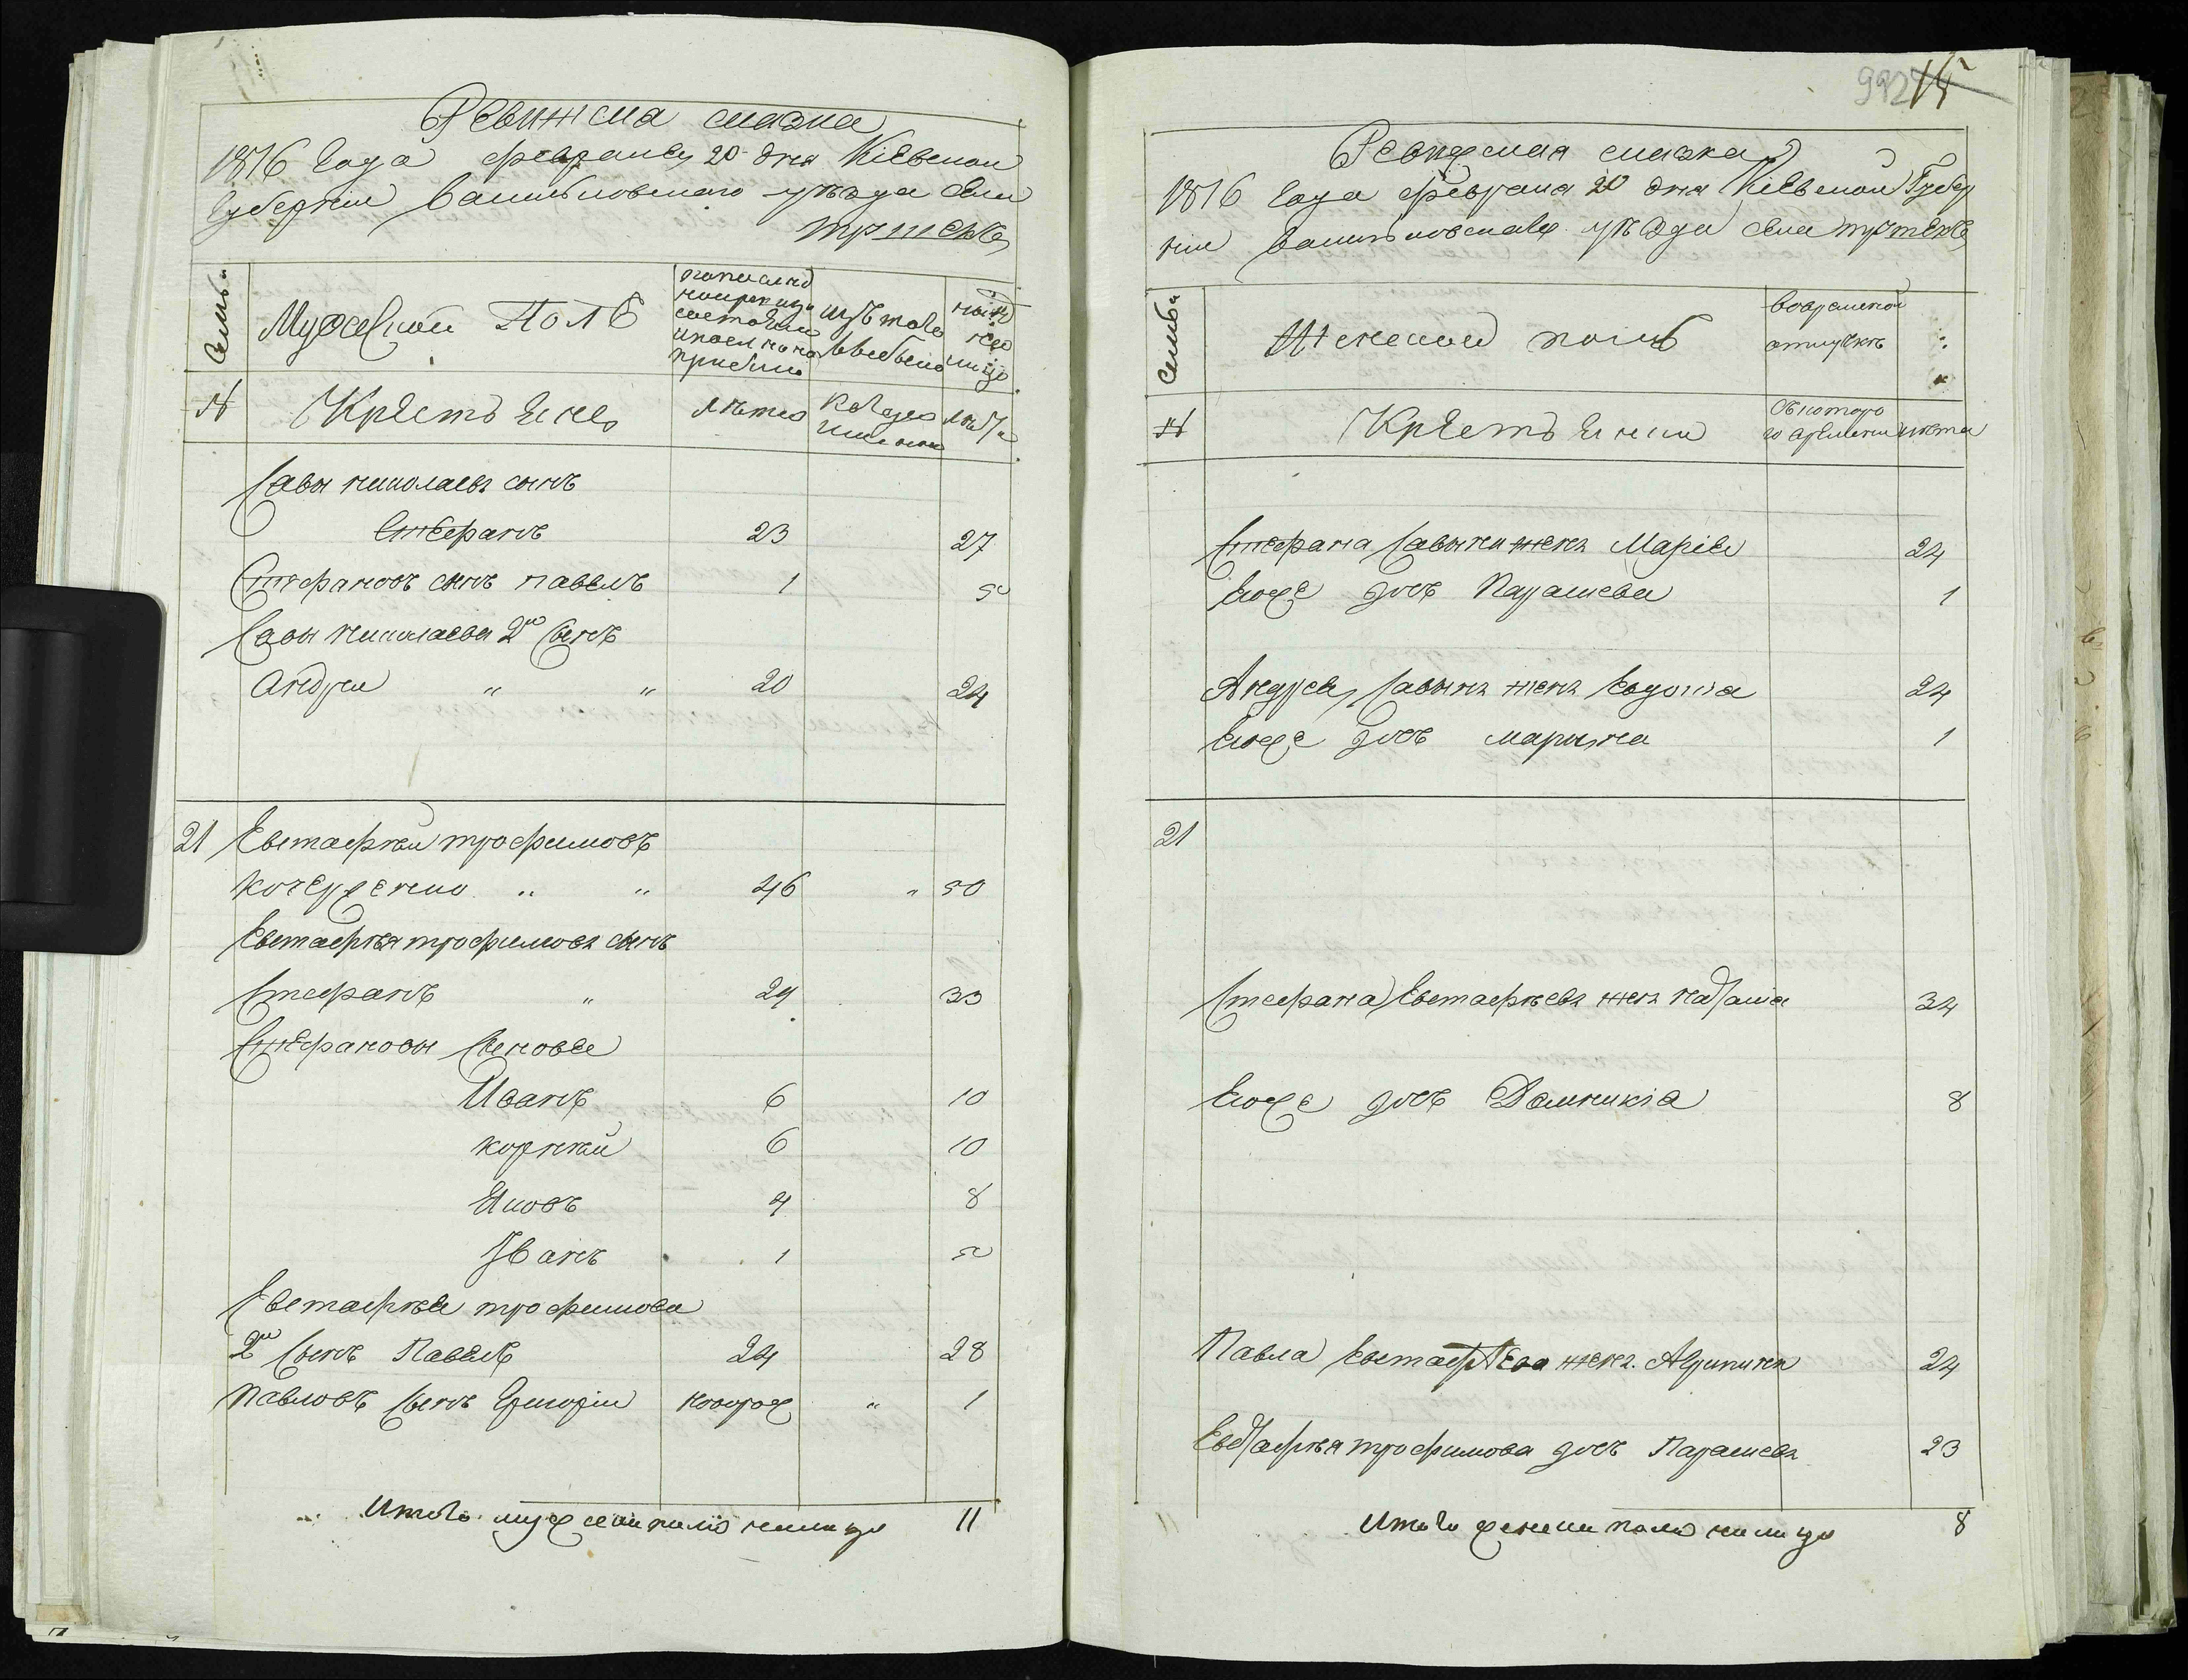 Ревижская сказка
1816 года февраля 20 дня Кіевской
Губерніи Васильковского уѣзда Села
Семья
Мужеской Полъ
изъ того
выбыло
№
Крестьяне
лѣта
лѣта
Савы николаева сынъ
Стефанъ 23 27
Стефановъ сынъ павелъ 1 5
Савы николаева 2й Сынъ
андрей " " 20 24
21 Евстафѣй трофимовъ
кочерженко " " 46 " 50
Евстафѣя трофимова сынъ
Стефанъ " 29 33
Стефановы Сыновье
Иванъ 6 10
корнѣй 6 10
Яковъ 4 8
Иванъ 1 5
Евстафѣя трофимова
2й Сынъ Павелъ 24 28
Павловъ Сынъ Григорій новорож " 1
Итого мужеска пола налицо 11
992 15
Ревижская сказка
1816 года февраля 20 дня Кіевской Губер
ніи Васильковскаго уѣзда Села
Семья
Женской полъ
во временной
отлучкѣ
№
Крестьянки
Съ котораго
времени
лѣта
Стефана Савына жена Марія 24
Єюже дочь Параскева 1
Андрея Савына жена Евдокія 24
Єюже дочь марына 1
21
Стефана Евстафѣева жена наталія 34
Єюже дочь Домникія 8
Павла Евстафѣева жена Агрипина 24
Евстафѣя трофимова дочь Параскева 23
Итого женска пола налицо 8